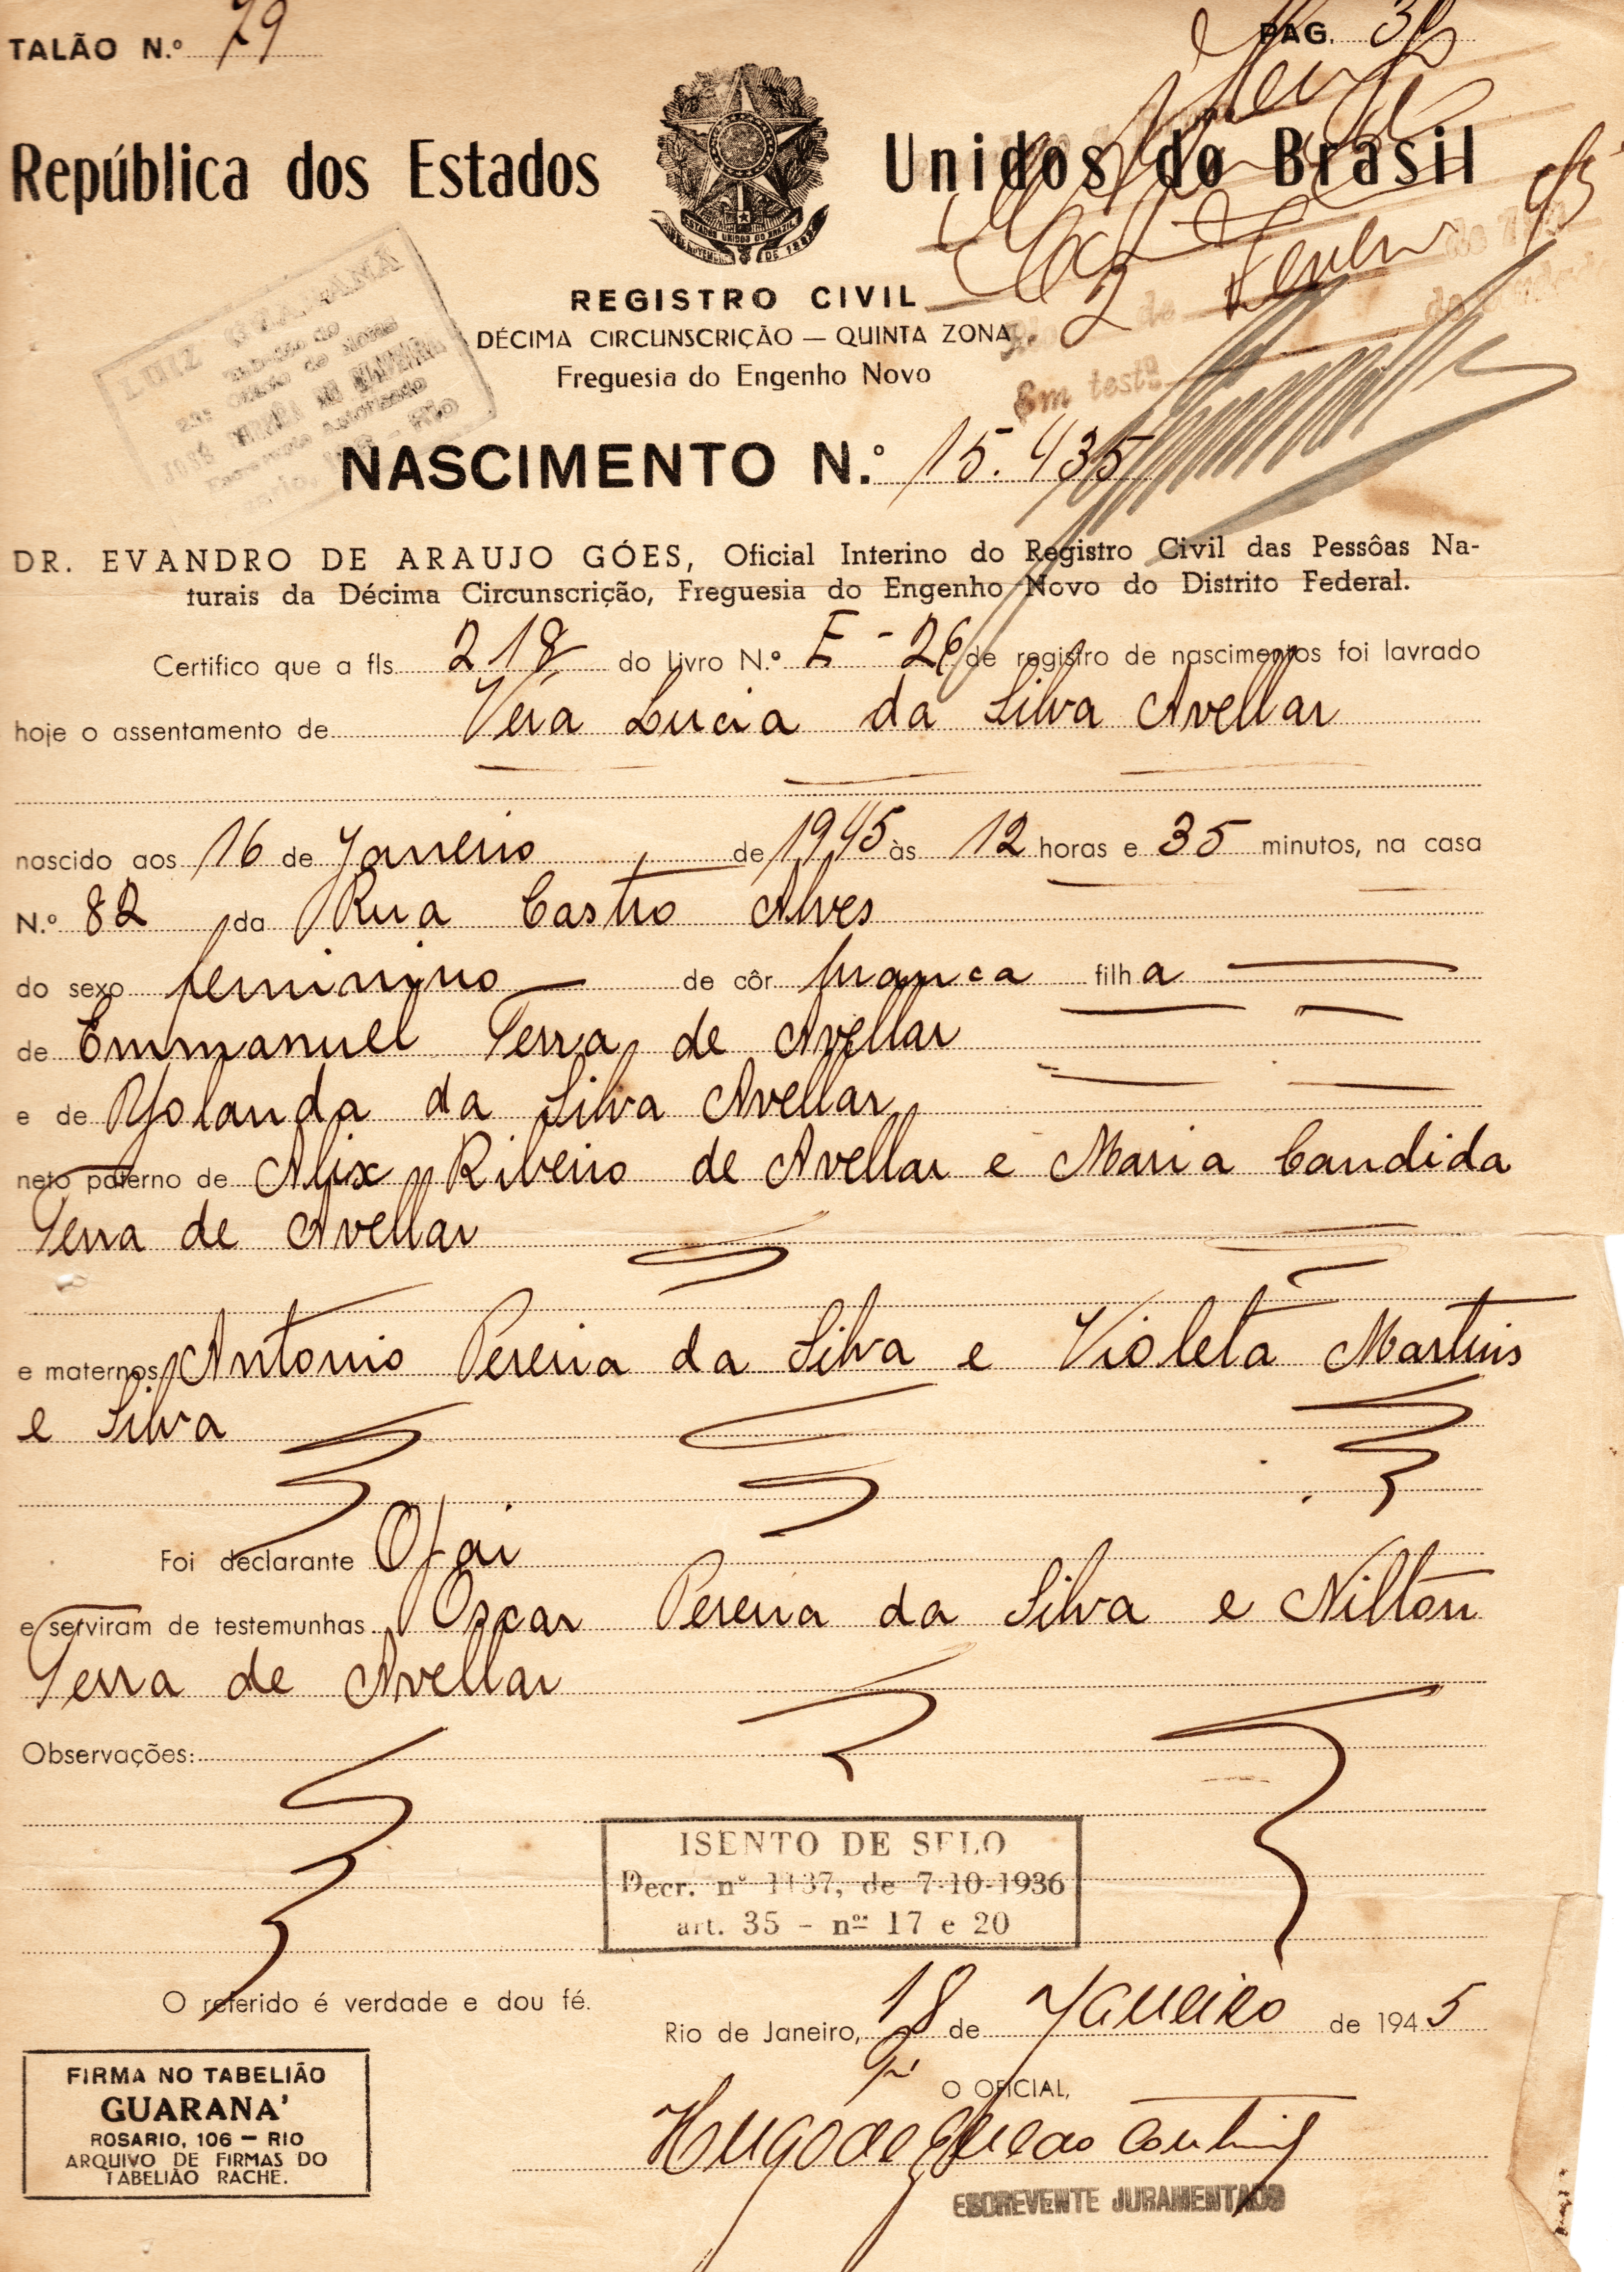 TALÃO N.º 79
PAG. 31
República dos Estados Unidos do Brasil
ESTADOS UNIDOS DO BRASIL
REGISTRO CIVIL
DÉCIMA CIRCUNSCRIÇÃO — QUINTA ZONA
Freguesia do Engenho Novo
LUIZ GUARANÁ
Em testº
NASCIMENTO N.º 15.435
DR. EVANDRO DE ARAUJO GÓES, Oficial Interino do Registro Civil das Pessôas Na-
turais da Décima Circunscrição, Freguesia do Engenho Novo do Distrito Federal.
Certifico que a fls. 218 do livro N.º E-26 de registro de nascimentos foi lavrado
hoje o assentamento de Vera Lucia da Silva Avellar
nascido aos 16 de Janeiro de 1945 às 12 horas e 35 minutos, na casa
N.º 82 da Rua Castro Alves
do sexo feminino de côr branca filha
de Emmanuel Terra de Avellar
e de Yolanda da Silva Avellar
neto paterno de Alix Ribeiro de Avellar e Maria Candida
Terra de Avellar
e maternos Antonio Pereira da Silva e Violeta Martins
e Silva
Foi declarante O pai
e serviram de testemunhas Oscar Pereira da Silva e Nilton
Terra de Avellar
Observações:
ISENTO DE SELO
Decr. nº 1137, de 7-10-1936
art. 35 - nos 17 e 20
O referido é verdade e dou fé.
Rio de Janeiro, 18 de Janeiro de 1945
O OFICIAL,
ESCREVENTE JURAMENTADO
FIRMA NO TABELIÃO
GUARANA'
ROSARIO, 106 — RIO
ARQUIVO DE FIRMAS DO
TABELIÃO RACHE.